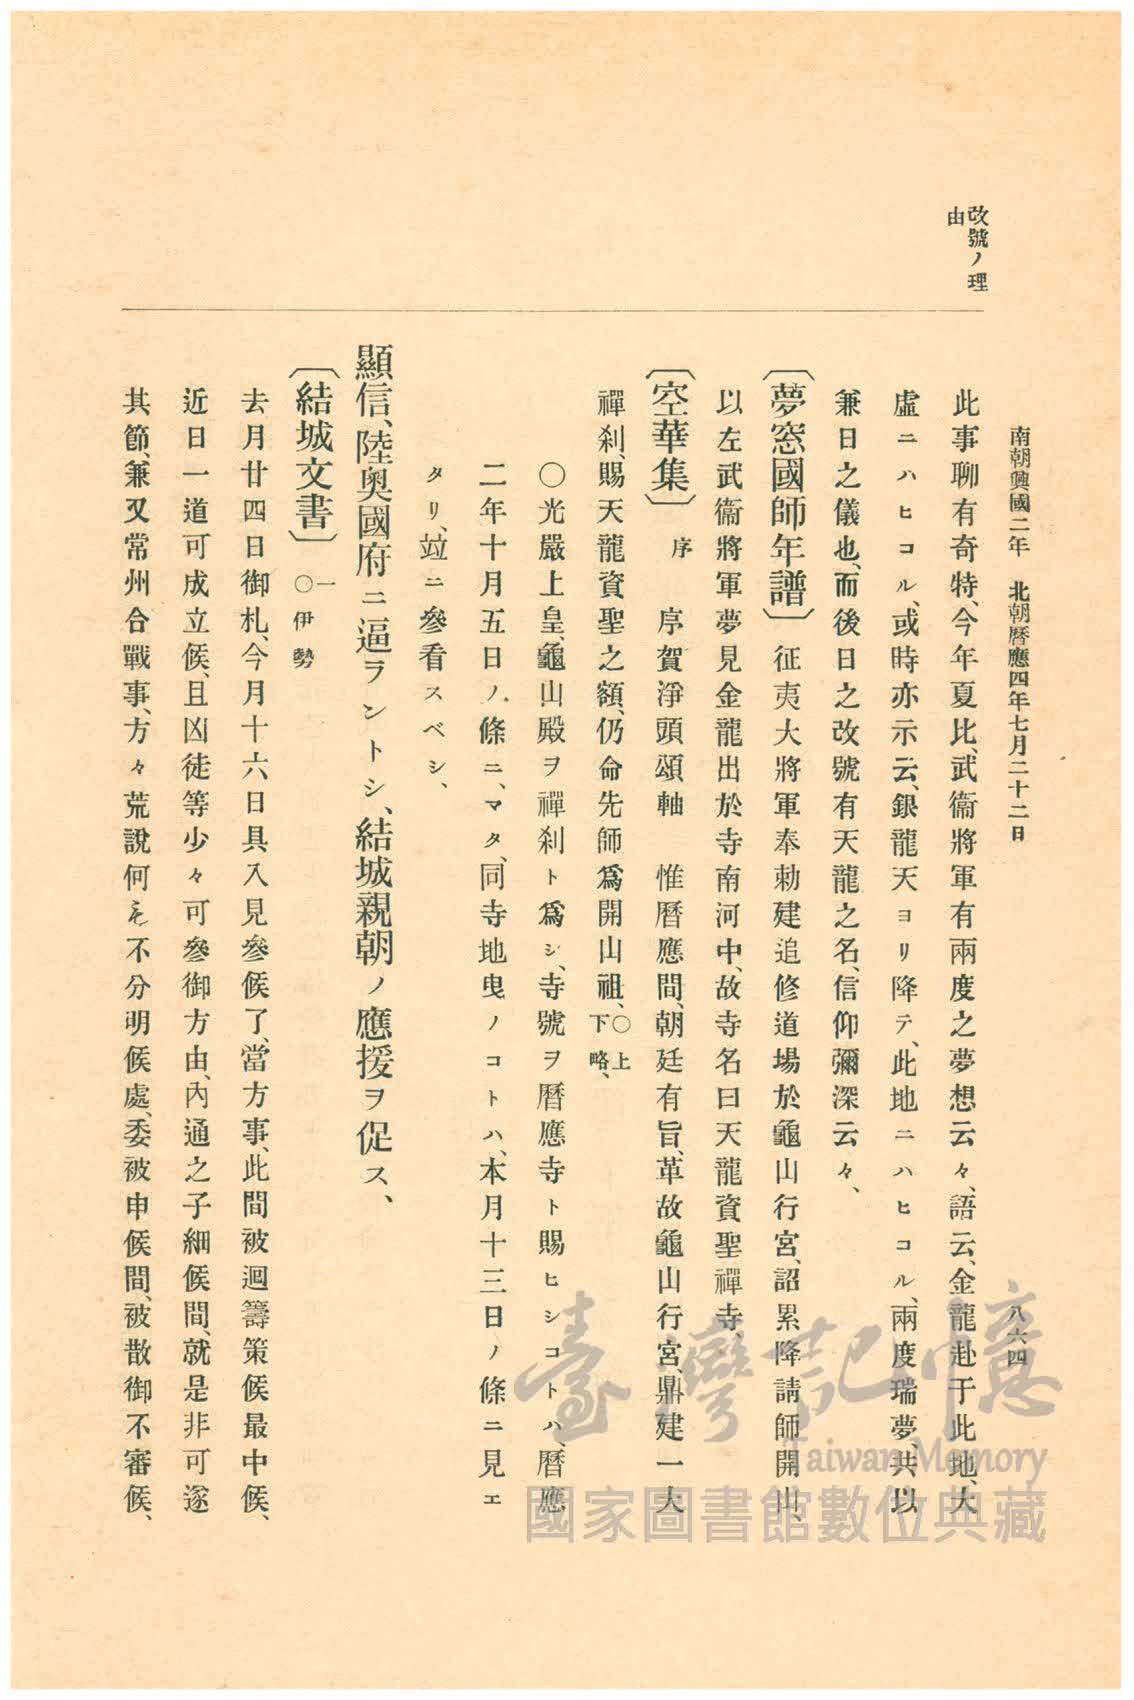 南朝興國二年　北朝曆應四年七月二十二日
八六四
改號ノ理
由
此事聊有奇特、今年夏比、武衞將軍有兩度之夢想云々、語云、金龍赴于此地、大
虛ニハヒコル、或時亦示云、銀龍天ヨリ降テ、此地ニハヒコル、兩度瑞夢、共以
兼日之儀也、而後日之改號有天龍之名、信仰彌深云々、
〔夢窓國師年譜〕征夷大將軍奉勅建追修道場於龜山行宮、詔累降請師開山、
以左武衞將軍夢見金龍出於寺南河中、故寺名曰天龍資聖禪寺、
〔空華集〕序　序賀淨頭頌軸　惟曆應間、朝廷有旨、革故龜山行宮、鼎建一大
禪刹、賜天龍資聖之額、仍命先師爲開山祖、〇上下略、
〇光嚴上皇、龜山殿ヲ禪刹ト爲シ、寺號ヲ曆應寺ト賜ヒシコトハ、曆應
二年十月五日ノ條ニ、マタ、同寺地曳ノコトハ、本月十三日ノ條ニ見エ
タリ、竝ニ參看スベシ、
顯信、陸奧國府ニ逼ラントシ、結城親朝ノ應援ヲ促ス、
〔結城文書〕一〇伊勢
去月廿四日御札、今月十六日具入見參候了、當方事、此間被迴籌策候最中候、
近日一道可成立候、且凶徒等少々可參御方由、內通之子細候間、就是非可遂
其節、兼又常州合戰事、方々荒說何も不分明候處、委被申候間、被散御不審候、
臺灣記憶
Taiwan Memory
國家圖書館數位典藏